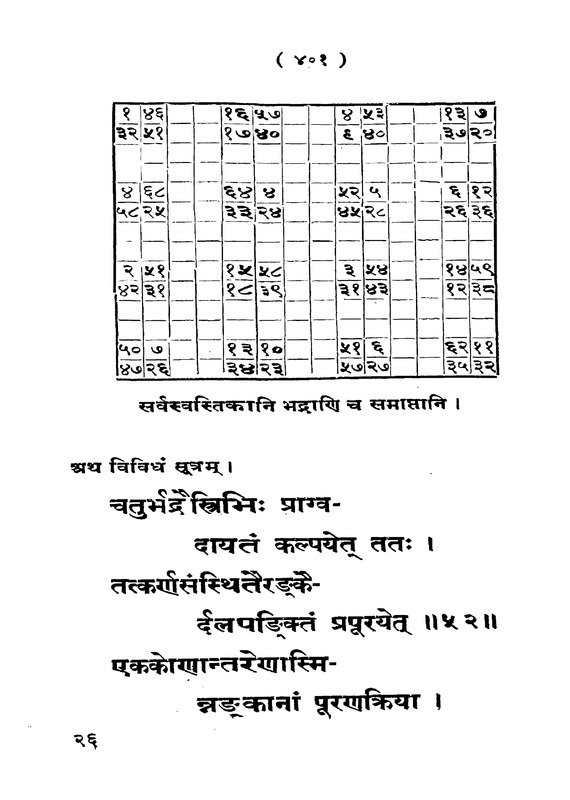 ( ४०१ )
१ ४६ १६ ५७ ४ ५३ १३ ७
३२ ५१ १७ ४० ६ ४० ३७ २०
४ ६८ ६४ ४ ५२ ५ ६ १२
५८ २५ ३३ २४ ४५ २८ २६ ३६
२ ५१ १५ ५८ ३ ५४ १४ ५९
४२ ३१ १८ ३९ ३१ ४३ १२ ३८
५० ७ १३ १० ५१ ६ ६२ ११
४७ २६ ३४ २३ ५७ २७ ३५ ३२
सर्वस्वस्तिकानि भद्राणि च समाप्तानि ।
अथ विविधं सूत्रम् ।
चतुर्भद्रैस्त्रिभिः प्राग्व-
दायतं कल्पयेत् ततः ।
तत्कर्णसंस्थितैरङ्कै-
र्दलपङ्क्तिं प्रपूरयेत् ॥५२॥
एककोणान्तरेणास्मि-
न्नङ्कानां पूरणक्रिया ।
२६